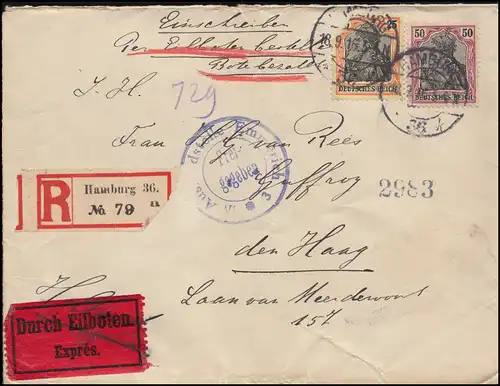 Einschreiben
Per Eilboten bestellen
Bote bezahlt
25
DEUTSCHES REICH
50 50
DEUTSCHES REICH
HAMBURG
36
729
I. H.
Frau van Rees
R
Hamburg 36.
№ 79 a
2983
den Haag
Laan van Meerdervoort
157
Durch Eilboten.
Exprès.